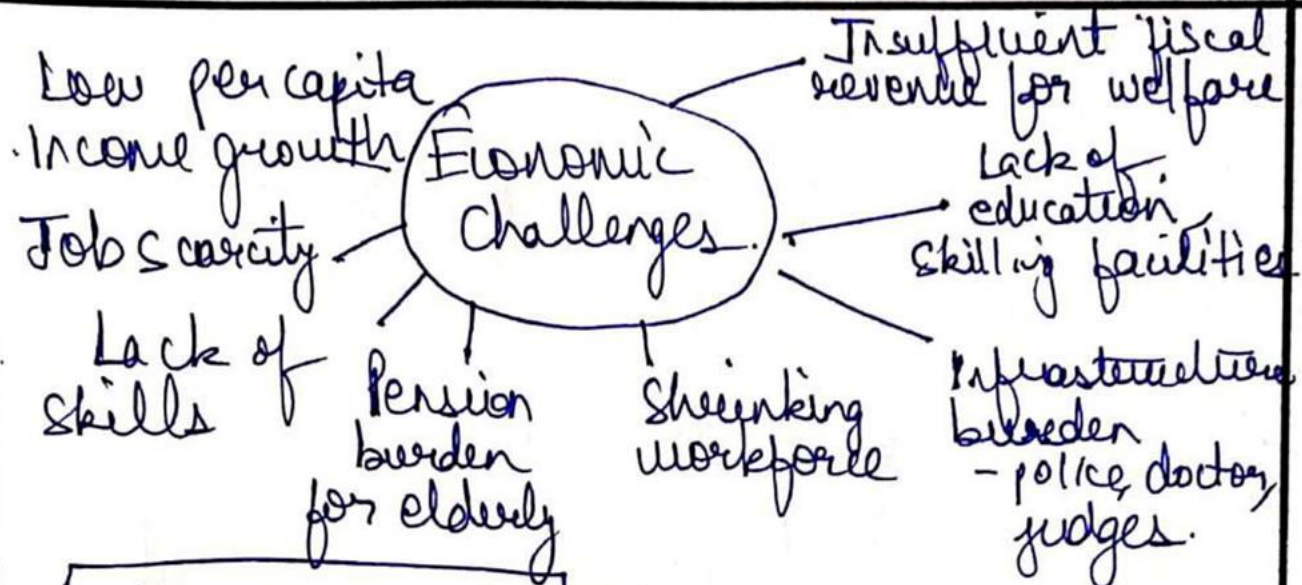 Economic
Challenges.
Low per capita
Income growth
Job scarcity
Lack of
skills
Pension
burden
for elderly
Shrinking
workforce
Infrastructure
burden
- police, doctor,
judges.
Lack of
education,
skilling facilities
Insufficient fiscal
revenue for welfare